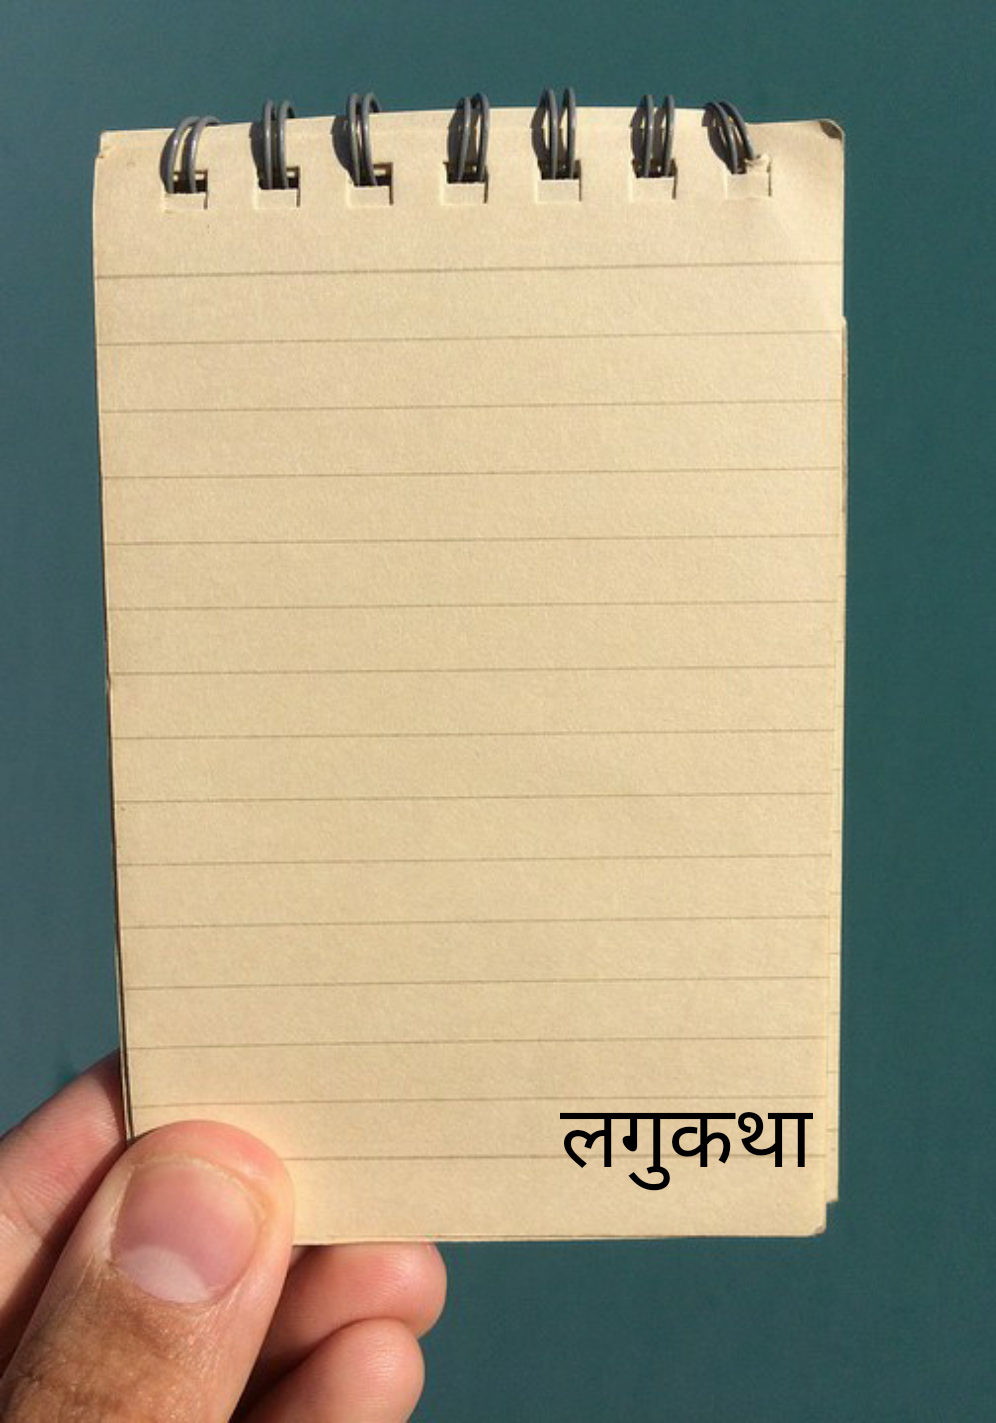 लगुकथा